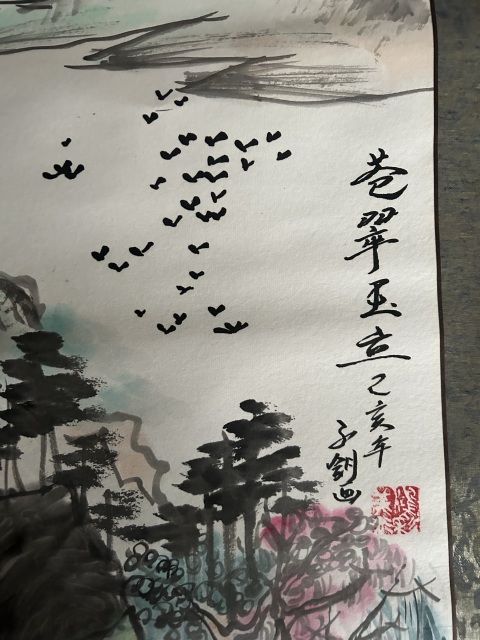 苍翠玉立己亥年
子剑画